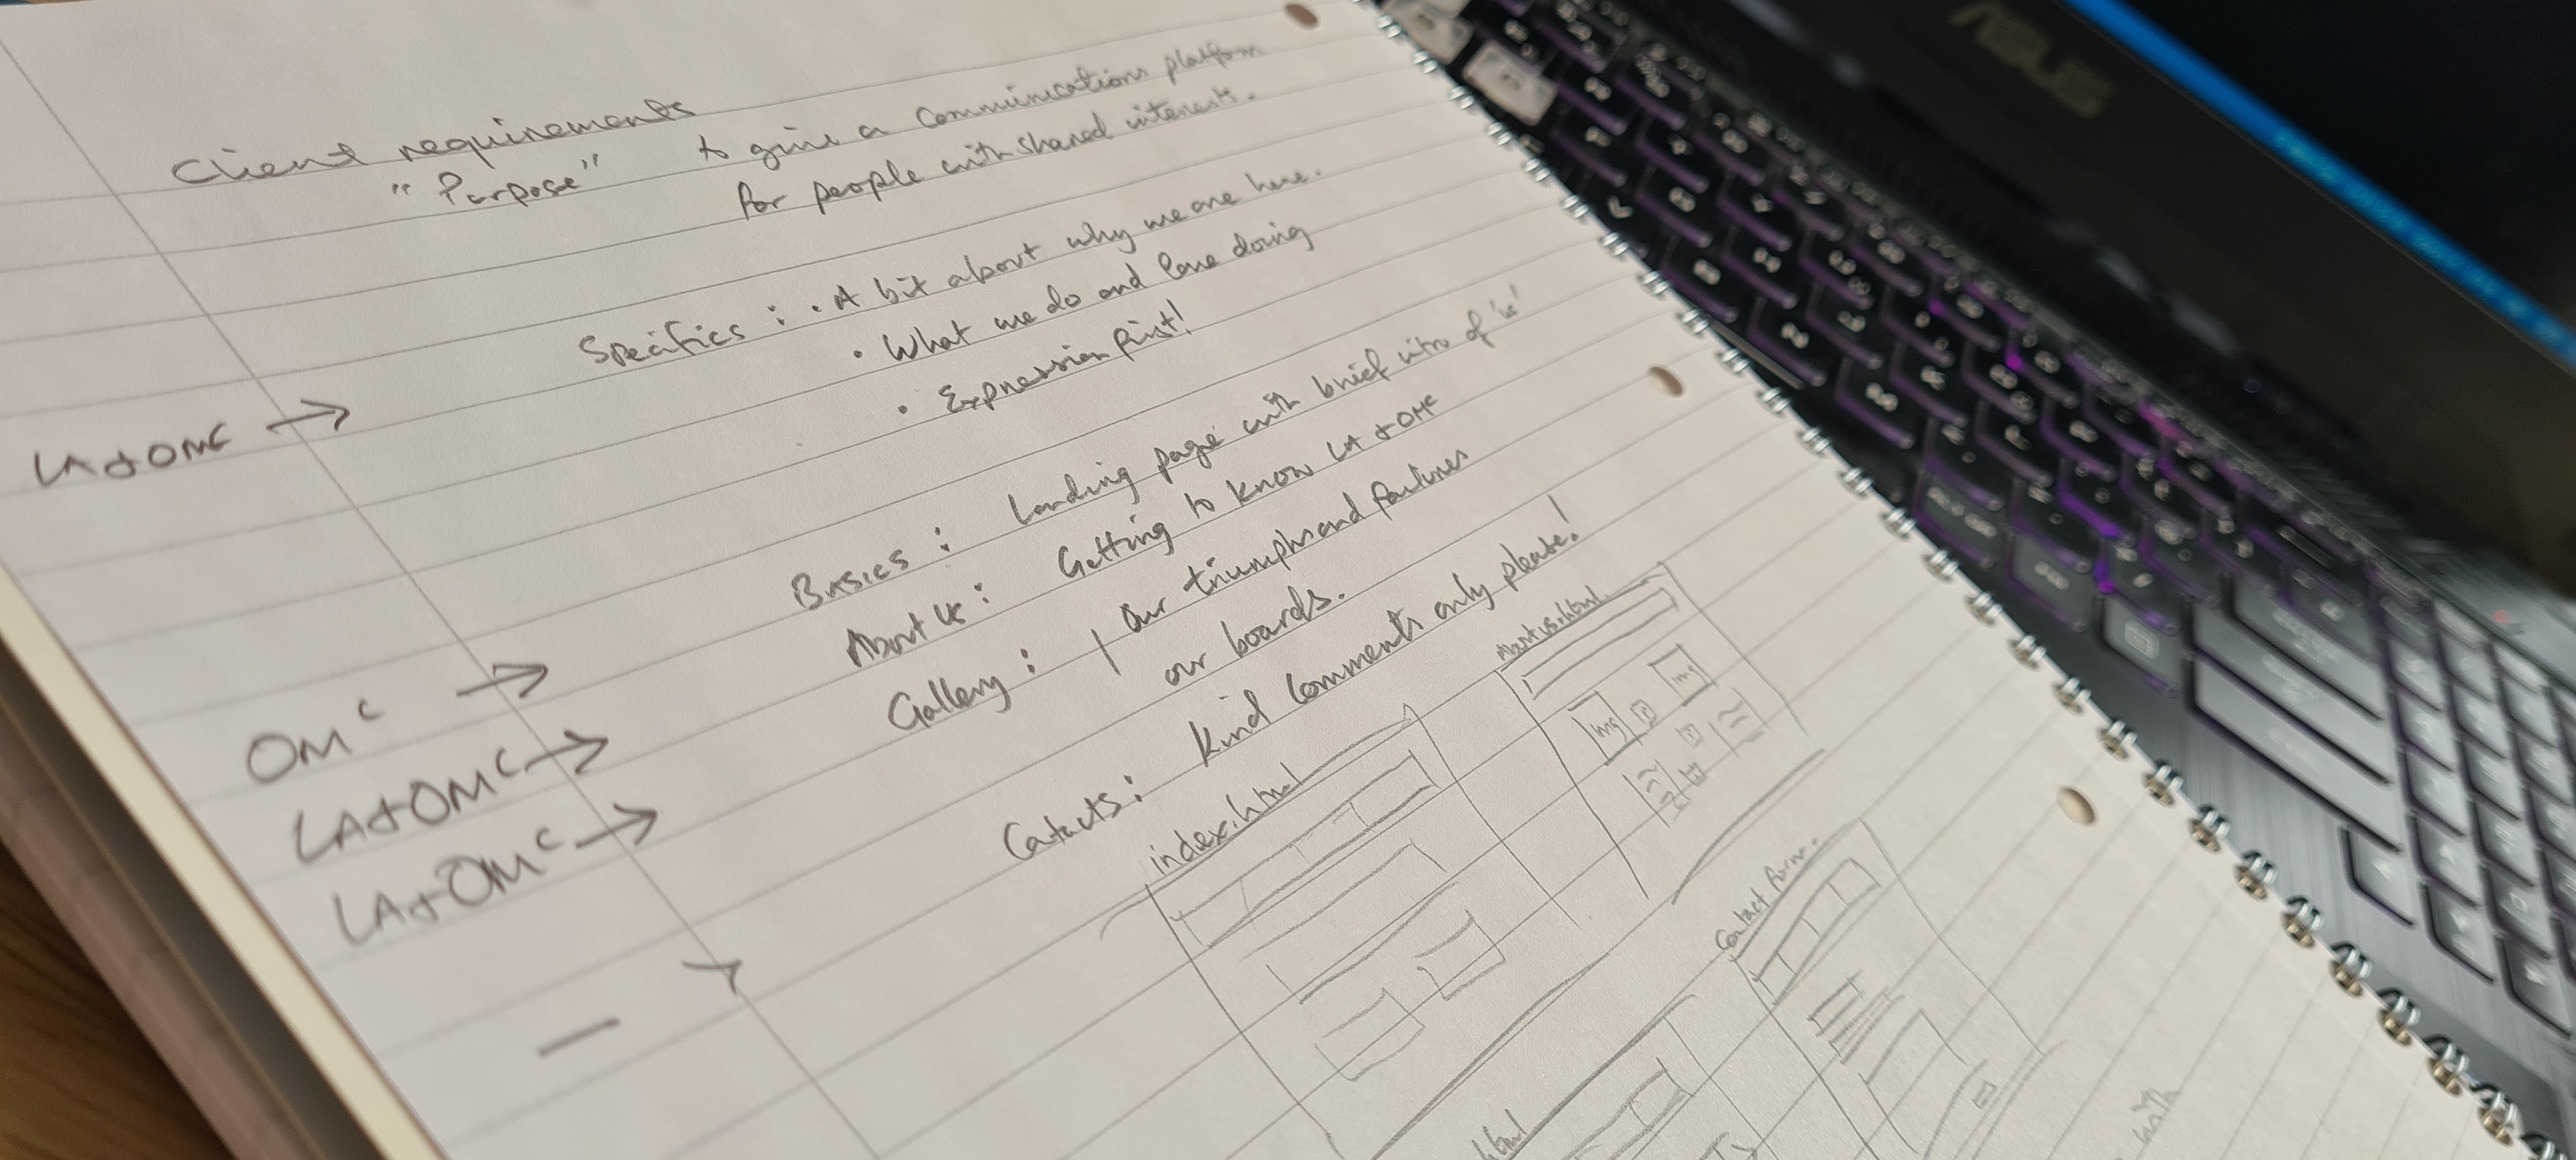 Client requirements
"Purpose" to give a communications platform
for people with shared interests.
LA & OMC → Specifics : • A bit about why we are here.
• What we do and love doing
• Expression first!
OMC → Basics : Landing page with brief intro of 'us'
LA & OMC → About Us : Getting to know LA & OMC
LA & OMC → Gallery : Our triumphs and failures
our boards.
— → Catacts : Kind comments only please!
index.html
About us.html
img
img
Contact form.
.html
with
ASUS